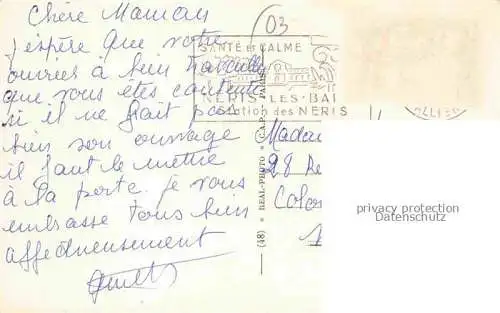 Chère Maman
j'espère que votre
ouvries à bien travaillé
que vous êtes contente
si il ne fait pas
bien son ouvrage
il faut le mettre
à la porte. je vous
embrasse tous bien
affectueusement
03
SANTÉ et CALME
NERIS-LES-BAI
des NERIS
(48) REAL-PHOTO C.A.P. PARIS
Madam
28
Colo
privacy protection
Datenschutz